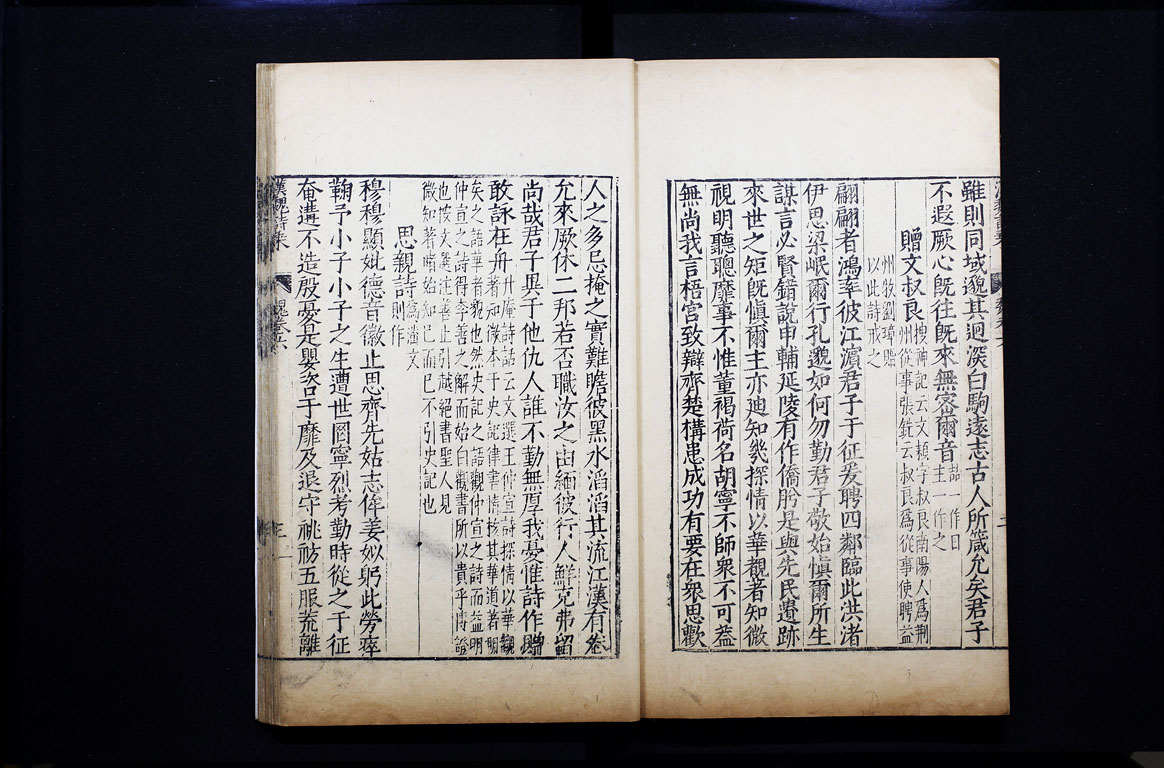 雖則同域邈其迥深白駒遠志古人所箴允矣君子
不遐厥心旣往旣來無密爾音喆一作日
主一作之
贈文叔良搜神記云文穎字叔良南陽人爲荆
州從事張銑云叔良爲從事使聘益
州牧劉璋貽
以此詩戒之
翩翩者鴻率彼江濵君子于征爰聘四鄰臨此洪渚
伊思梁岷爾行孔邈如何勿勤君子敬始愼爾所主
謀言必賢錯說申輔延陵有作僑肸是與先民遺跡
來世之矩旣愼爾主亦廸知幾探情以華觀著知微
視明聽聰靡事不惟董褐荷名胡寧不師衆不可葢
無尚我言梧宫致辯齊楚構患成功有要在衆思歡
人之多忌掩之實難瞻彼黑水滔滔其流江漢有卷
允來厥休二邦若否職汝之由緬彼行人鮮克弗留
尚哉君子異于他仇人誰不勤無厚我憂惟詩作贈
敢詠在舟升庵詩話云文選王仲宣詩探情以華觀
著知微本于史記律書情核其華道著明
矣之語華者貌也然史記之語觀仲宣之詩而益明
仲宣之詩得李善之解而始白觀書所以貴乎博證
也惟文選注善止引越絕書聖人見
微知著睹始知已而已不引史記也
思親詩爲潘文
則作
穆穆顯妣德音徽止思齊先姑志侔姜姒躬此勞瘁
鞠予小子小子之生遭世罔寧烈考勤時從之于征
奄遘不造殷憂是嬰咨于靡及退守祧祊五服荒離
漢魏詩乘
魏卷六
三